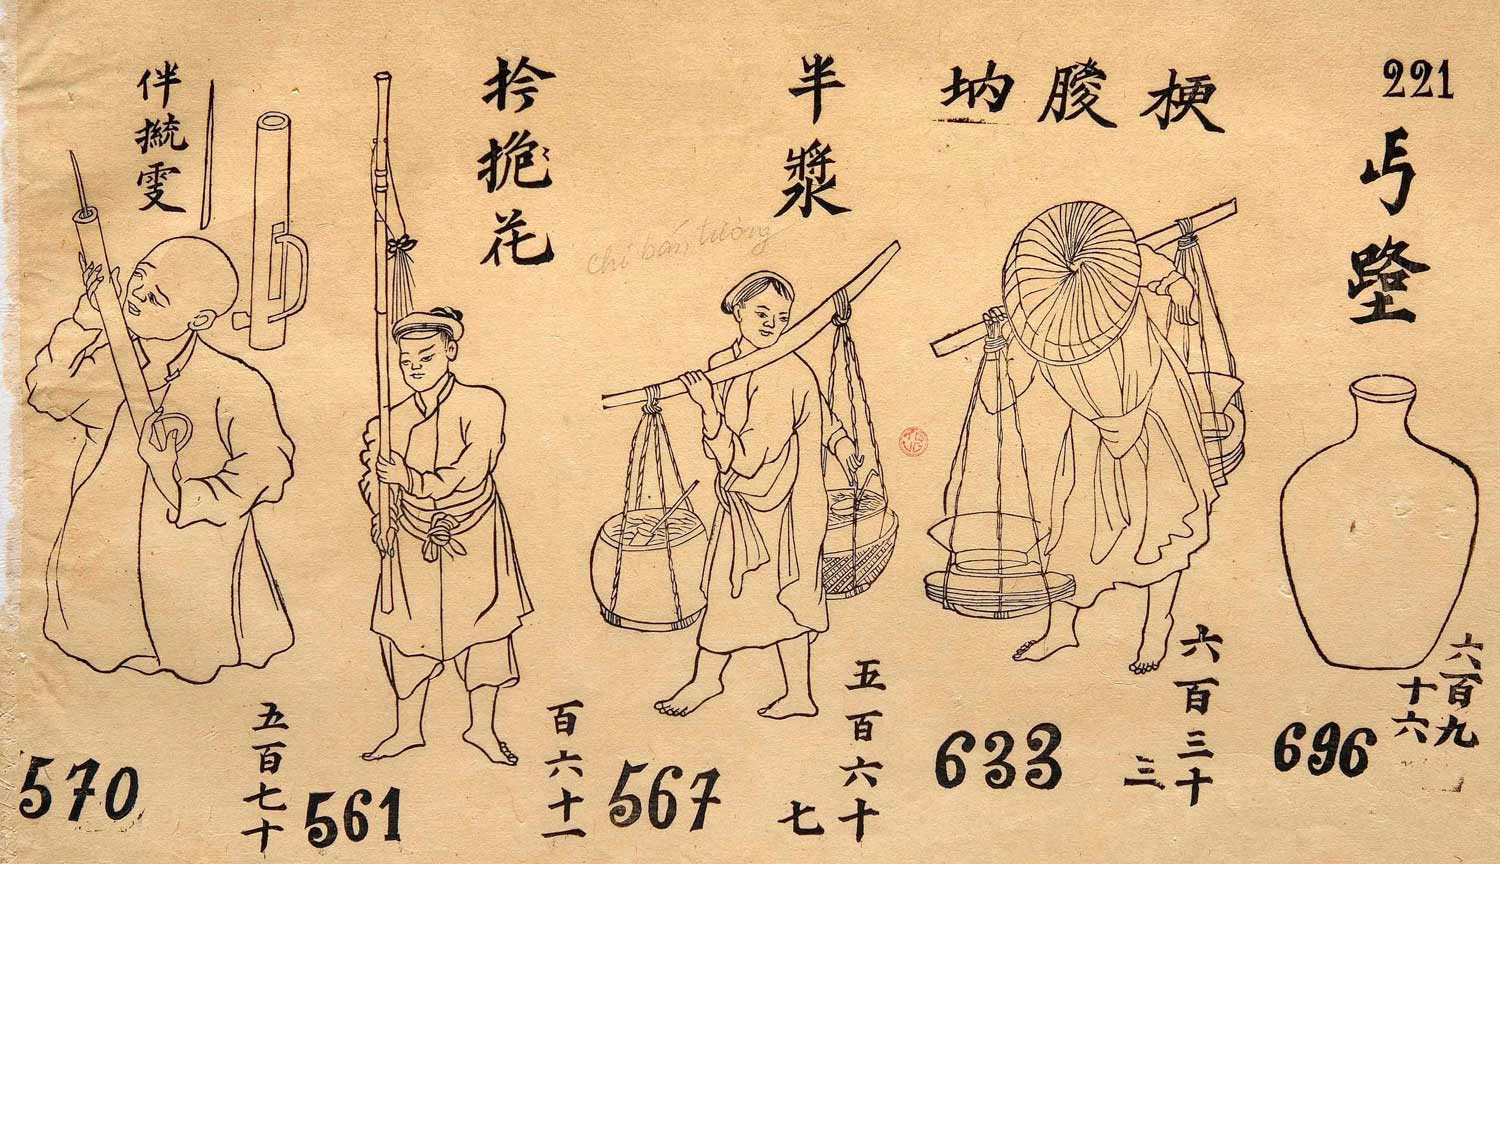 221
丐
半漿
伴𢹥雯
花
梗 朘 妠
chi bán tương
六百九
十六
696
六百三十
三
633
五百六十
七
567
百六十一
561
五百七十
570